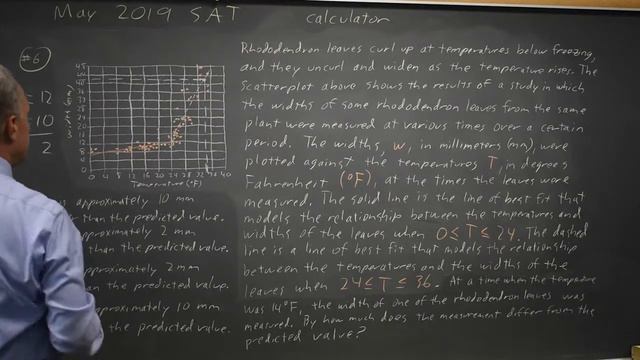 May 2019 SAT
calculator
#6
= 12
10
2
Width (mm)
0 4 8 12 16 20 24 28 32 36 40
Temperature (°F)
is approximately 10 mm
than the predicted value.
approximately 2 mm
than the predicted value.
approximately 2 mm
than the predicted value.
approximately 10 mm
the predicted value.
Rhododendron leaves curl up at temperatures below freezing,
and they uncurl and widen as the temperature rises. The
scatterplot above shows the results of a study in which
the widths of some rhododendron leaves from the same
plant were measured at various times over a certain
period. The widths, w, in millimeters (mm), were
plotted against the temperatures T, in degrees
Fahrenheit (°F), at the times the leaves were
measured. The solid line is the line of best fit that
models the relationship between the temperatures and
widths of the leaves when 0 ≤ T ≤ 24. The dashed
line is a line of best fit that models the relationship
between the temperatures and the widths of the
leaves when 24 ≤ T ≤ 36. At a time when the temperature
was 14°F, the width of one of the rhododendron leaves was
measured. By how much does the measurement differ from the
predicted value?